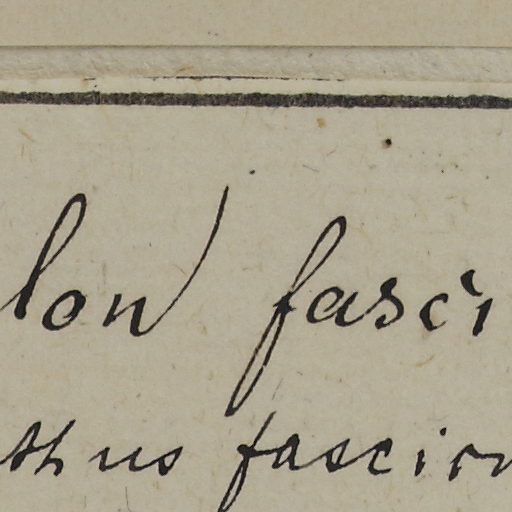 lon fasci
thus fascion